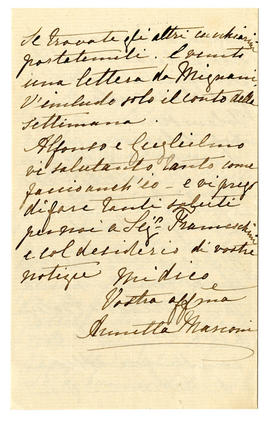 Se trovate gli altri cucchiarini
portatemili. È venuto
una lettera da Mignani.
V'includo solo il conto della
settimana.
Alfonso e Guglielmo
vi salutano tanto come
faccio anch'io – e vi prego
di fare tanti saluti
per noi a Sigra Franceschini
e col desiderio di vostre
notizie mi dico
Vostra affma
Annetta Marconi